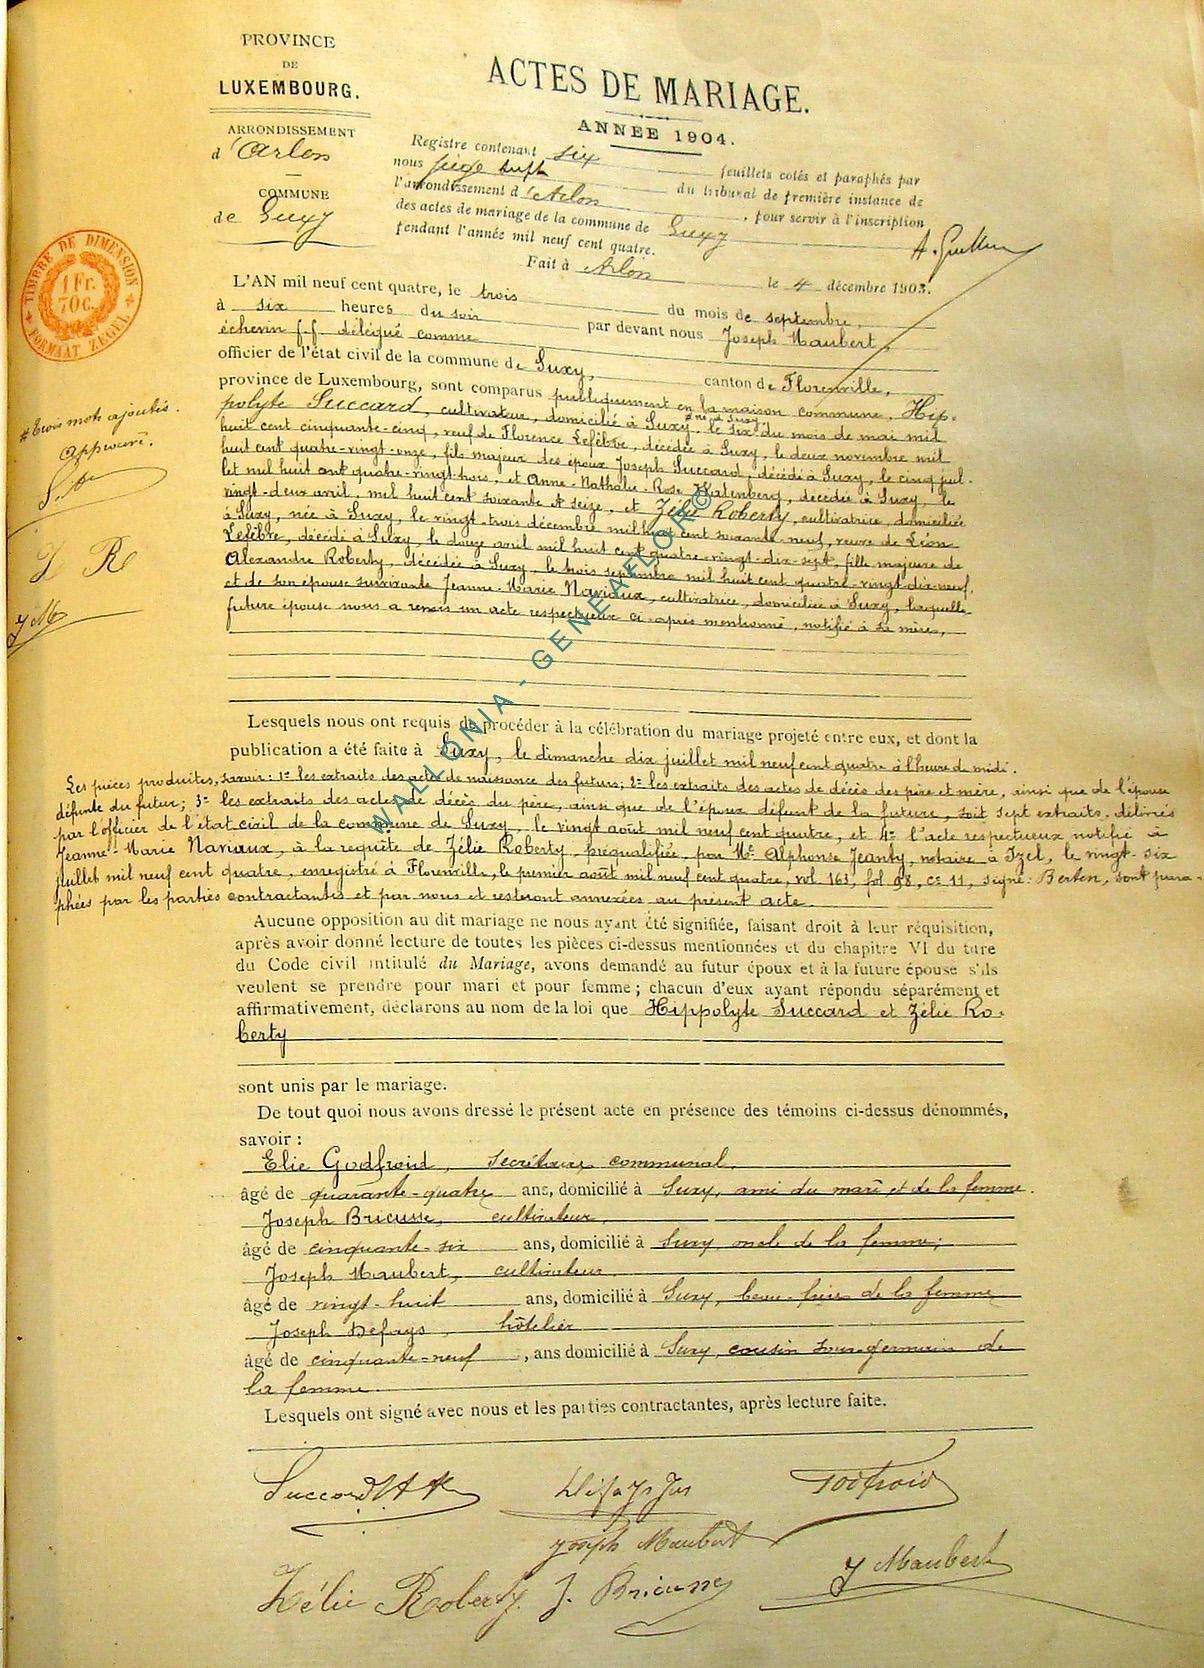 PROVINCE
DE
LUXEMBOURG.
ARRONDISSEMENT
d'Arlon
COMMUNE
de Suxy
ACTES DE MARIAGE.
ANNÉE 1904.
Registre contenant six feuillets cotés et paraphés par
nous juge du tribunal de première instance de
l'arrondissement d'Arlon, pour servir à l'inscription
des actes de mariage de la commune de Suxy
pendant l'année mil neuf cent quatre.
Fait à Arlon le 4 décembre 1903.
TIMBRE DE DIMENSION
1 Fr.
70c.
FORMAAT ZEGEL
L'AN mil neuf cent quatre, le trois du mois de septembre,
à six heures du soir par devant nous Joseph Maubert,
échevin f.f. délégué comme
officier de l'état civil de la commune de Suxy, canton de Florenville,
province de Luxembourg, sont comparus publiquement en la maison commune, Hip-
polyte Succard, cultivateur, domicilié à Suxy, né à Suxy, le six du mois de mai mil
huit cent cinquante-cinq, veuf de Florence Lefèbvre, décédée à Suxy, le deux novembre mil
huit cent quatre-vingt-onze, fils majeur des époux Joseph Succard, décédé à Suxy, le cinq juil-
let mil huit cent quatre-vingt-trois, et Anne-Nathalie-Rose Watenberg, décédée à Suxy, le
vingt-deux avril, mil huit cent soixante et seize, et Zélie Roberty, cultivatrice, domiciliée
à Suxy, née à Suxy, le vingt-trois décembre mil huit cent soixante-neuf, veuve de Léon
Lefèbre, décédé à Suxy, le douze avril mil huit cent quatre-vingt-dix-sept, fille majeure de
Alexandre Roberty, décédée à Suxy, le trois septembre mil huit cent quatre-vingt-dix-neuf,
et de son épouse survivante Jeanne-Marie Naviaux, cultivatrice, domiciliée à Suxy, laquelle
future épouse nous a remis un acte respectueux ci-après mentionné, notifié à sa mère,
# trois mots ajoutés.
Approuvé.
Z R
J M
Lesquels nous ont requis de procéder à la célébration du mariage projeté entre eux, et dont la
publication a été faite à Suxy, le dimanche dix juillet mil neuf cent quatre à l'heure de midi.
Les pièces produites, savoir: 1° les extraits des actes de naissance des futurs; 2° les extraits des actes de décès des père et mère, ainsi que de l'épouse
défunte du futur; 3° les extraits des actes de décès du père, ainsi que de l'époux défunt de la future, soit sept extraits, délivrés
par l'officier de l'état civil de la commune de Suxy, le vingt août mil neuf cent quatre, et 4° l'acte respectueux notifié à
Jeanne-Marie Naviaux, à la requête de Zélie Roberty, préqualifiée, par Me Alphonse Jeanty, notaire à Izel, le vingt-six
juillet mil neuf cent quatre, enregistré à Florenville, le premier août mil neuf cent quatre, vol. 163, fol 98, ce 11, signé: Berten, sont para-
phées par les parties contractantes et par nous et resteront annexées au présent acte.
Aucune opposition au dit mariage ne nous ayant été signifiée, faisant droit à leur réquisition,
après avoir donné lecture de toutes les pièces ci-dessus mentionnées et du chapitre VI du titre
du Code civil intitulé du Mariage, avons demandé au futur époux et à la future épouse s'ils
veulent se prendre pour mari et pour femme; chacun d'eux ayant répondu séparément et
affirmativement, déclarons au nom de la loi que Hippolyte Succard et Zélie Ro-
berty
sont unis par le mariage.
De tout quoi nous avons dressé le présent acte en présence des témoins ci-dessus dénommés,
savoir :
Elie Godfroid, secrétaire communal,
âgé de quarante-quatre ans, domicilié à Suxy, ami du mari et de la femme.
Joseph Bricusse, cultivateur,
âgé de cinquante-six ans, domicilié à Suxy, oncle de la femme;
Joseph Maubert, cultivateur
âgé de vingt-huit ans, domicilié à Suxy, beau-frère de la femme
Joseph Defays, hôtelier
âgé de cinquante-neuf, ans domicilié à Suxy, cousin sous-germain de
la femme.
Lesquels ont signé avec nous et les parties contractantes, après lecture faite.
Succard H
Defays Jos
Godfroid
Joseph Maubert
J Maubert
Zélie Roberty
J. Bricusse
WALLONIA - GENEAFLOR©